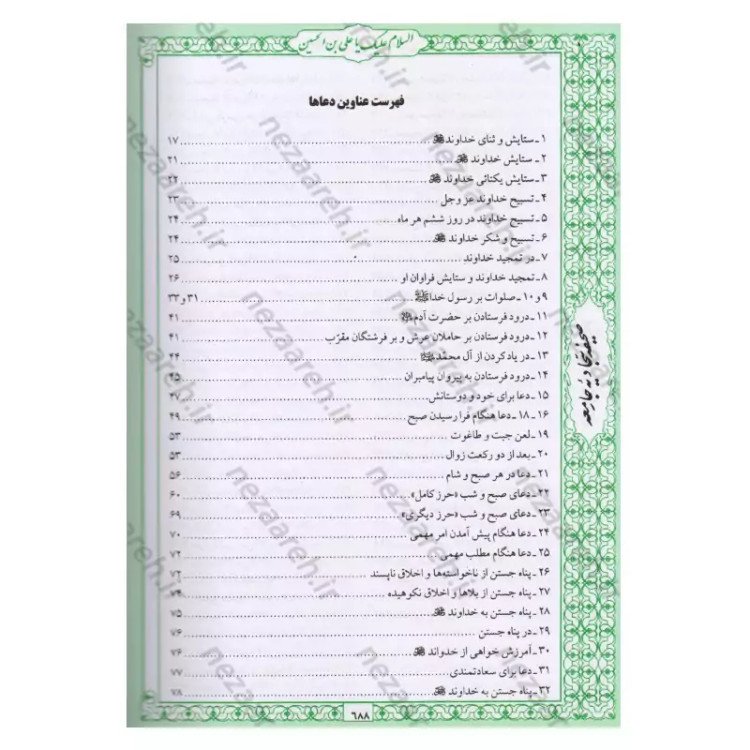 السلام علیک یا علی بن الحسین
فهرست عناوین دعاها
۱ـ ستایش و ثنای خداوند ﷻ ۱۷
۲ـ ستایش خداوند ﷻ ۲۱
۳ـ ستایش یکتائی خداوند ﷻ ۲۲
۴ـ تسبیح خداوند عز و جل ۲۳
۵ـ تسبیح خداوند در روز ششم هر ماه ۲۴
۶ـ تسبیح و شکر خداوند ﷻ ۲۴
۷ـ در تمجید خداوند ۲۵
۸ـ تمجید خداوند و ستایش فراوان او ۲۶
۹ و ۱۰ـ صلوات بر رسول خدا ﷺ ۳۱ و ۳۳
۱۱ـ درود فرستادن بر حضرت آدم ۴۱
۱۲ـ درود فرستادن بر حاملان عرش و بر فرشتگان مقرّب ۴۱
۱۳ـ در یاد کردن از آل محمّد ﷺ ۴۴
۱۴ـ درود فرستادن به پیروان پیامبران ۴۵
۱۵ـ دعا برای خود و دوستانش ۴۷
۱۶ ـ ۱۸ـ دعا هنگام فرا رسیدن صبح ۴۹
۱۹ـ لعن جبت و طاغوت ۵۳
۲۰ـ بعد از دو رکعت زوال ۵۳
۲۱ـ دعا در هر صبح و شام ۵۶
۲۲ـ دعای صبح و شب «حرز کامل» ۶۰
۲۳ـ دعای صبح و شب «حرز دیگری» ۶۹
۲۴ـ دعا هنگام پیش آمدن امر مهمی ۷۰
۲۵ـ دعا هنگام مطلب مهمی ۷۲
۲۶ـ پناه جستن از ناخواسته‌ها و اخلاق ناپسند ۷۲
۲۷ـ پناه جستن از بلاها و اخلاق نکوهیده ۷۴
۲۸ـ پناه جستن به خداوند ﷻ ۷۵
۲۹ـ در پناه جستن ۷۶
۳۰ـ آمرزش خواهی از خدواند ﷻ ۷۶
۳۱ـ دعا برای سعادتمندی ۷۷
۳۲ـ پناه جستن به خداوند ﷻ ۷۸
۶۸۸
صحیفه سجادیه جامعه
nezaareh.ir